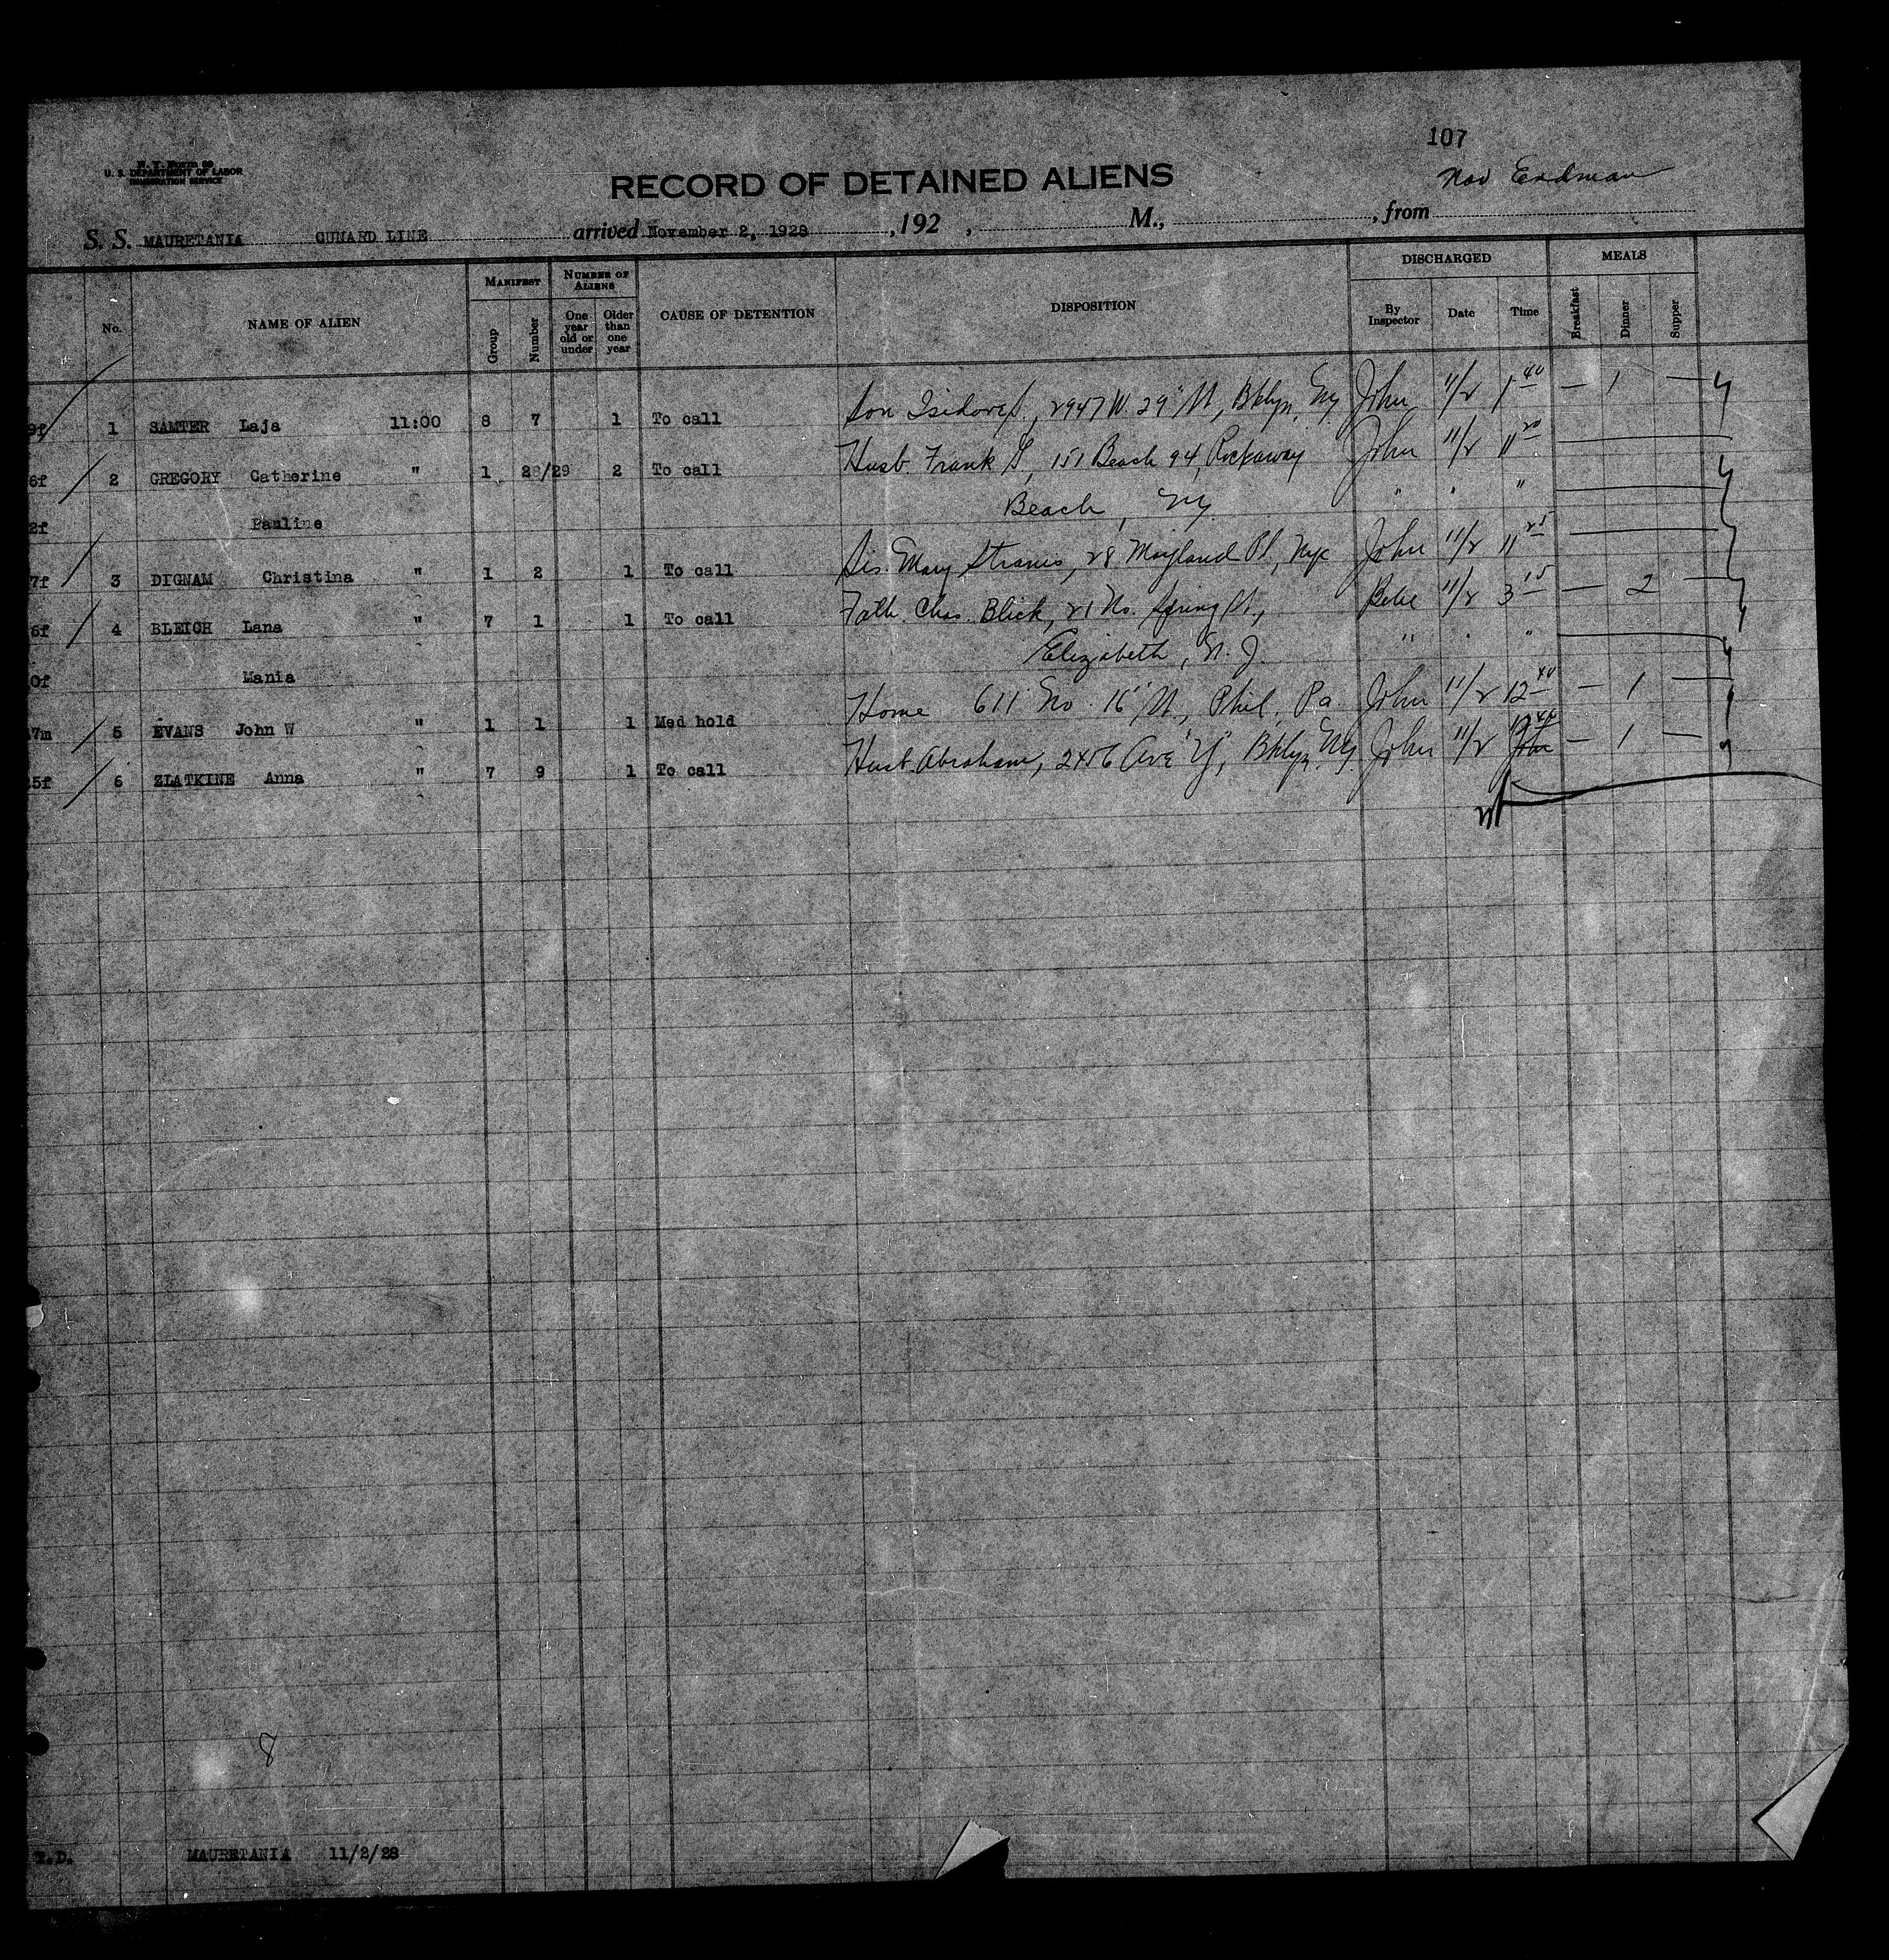 107
N. Y. Form 99
U. S. DEPARTMENT OF LABOR
IMMIGRATION SERVICE
RECORD OF DETAINED ALIENS
Nov Erdman
S. S. MAURETANIA CUNARD LINE arrived November 2, 1928 , 192 , M., , from
No. NAME OF ALIEN MANIFEST Group Number NUMBER OF ALIENS One year old or under Older than one year CAUSE OF DETENTION DISPOSITION DISCHARGED By Inspector Date Time MEALS Breakfast Dinner Supper
9f 1 SAMTER Laja 11:00 8 7 1 To call Son Isidore S., 2947 W. 29" St, Bklyn, Ny John 11/2 1 40 — 1 —
6f 2 GREGORY Catherine " 1 28/29 2 To call Husb. Frank G, 151 Beach 94, Rockaway John 11/2 11 20
2f Pauline Beach, Ny " " "
7f 3 DIGNAM Christina " 1 2 1 To call Sis. Mary, 28 Pl, Nyc John 11/2 11 25
6f 4 BLEICH Lana " 7 1 1 To call Fath. Chas. Blick, 21 No. Spring St., 11/2 3 15 — 2 —
0f Mania Elizabeth, N. J. " " "
7m 5 EVANS John W " 1 1 1 Med hold Home 611 No. 16" St., Phil, Pa John 11/2 12 40 — 1 —
5f 6 ZLATKINE Anna " 7 9 1 To call Husb. Abraham, 2456 Ave "Y", Bklyn, Ny. John 11/2 12 40 — 1 —
8
T.D. MAURETANIA 11/2/28